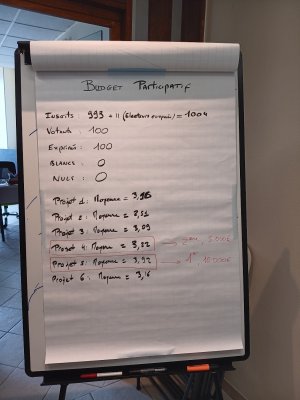 BUDGET PARTICIPATIF
Inscrits : 993 + 11 (Électeurs européens) = 1004
Votants : 100
Exprimés : 100
BLANCS : 0
NULS : 0
Projet 1 : Moyenne =
Projet 2 : Moyenne = 2,51
Projet 3 : Moyenne = 3,09
Projet 4 : Moyenne = 3,22 → 2ème, 5 000€
Projet 5 : Moyenne = 3,92 → 1er,
Projet 6 : Moyenne = 3,16